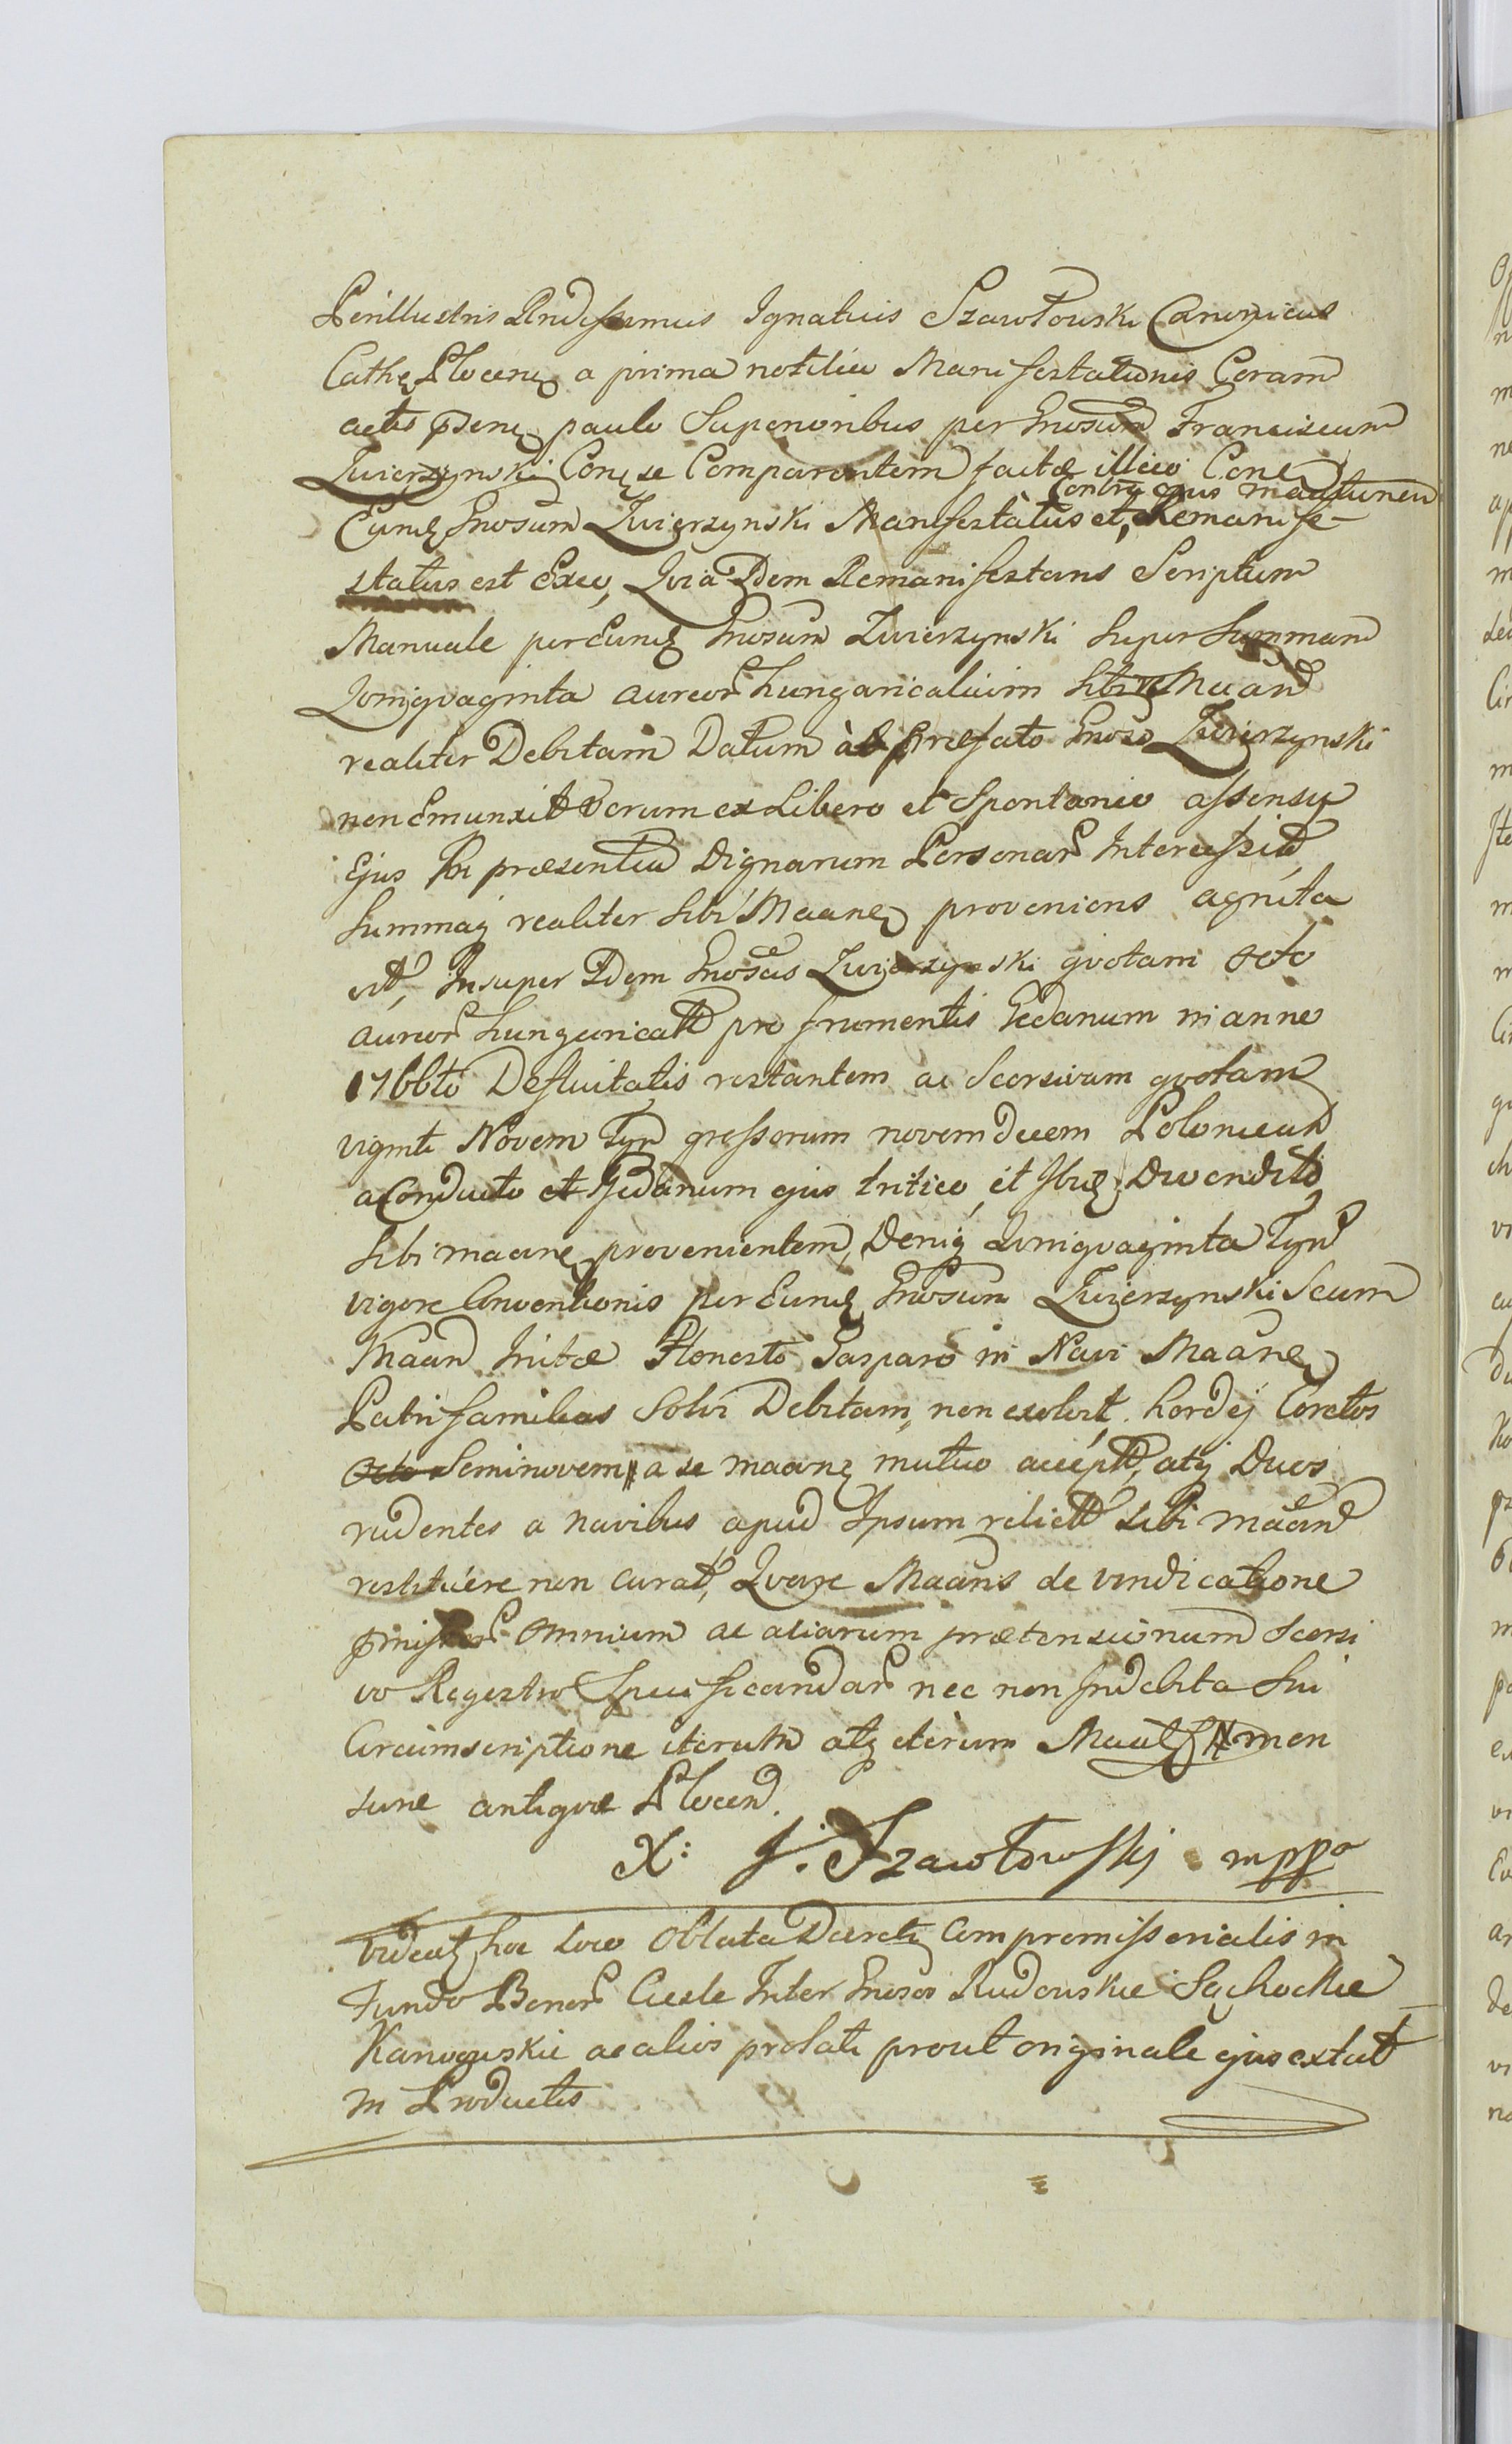 Perillustris Rndissimus Ignatius Szawłowski Canonicus
Cathę Plocenę a prima notitia Manifestationis Coram
actis pdenę paulo Superioribus per Gnosum Franciscum
Zwierzynski Conę se Comparentem factæ illico Cone
Contra ejus mac
Eundę Gnosum Zwierzynski Manifestatus et, Remanife-
status est Exeo, Qvia Idem Remanifestans Scriptum
Manuale per Eundę Gnosum Zwierzynski Super Summam
Qvinqvaginta aureor hungaricalium Sibi Maan
realiter Debitam Datum ab præfato Gnoso Zwierzynski
non Emunxit Verum ex Libero et Spontaneo assensu
Ejus In præsentia Dignarum Personar
Summaq realiter Sibi Maanę proveniens agnita
est, Insuper Idem Gnosus Zwierzynski qvotam octo
aureor hungarical pro frumentis Gedanum in anno
1766to Defluitatis restantem ac Seorsivam qvotam
viginti Novem Tyn grossorum novemdecem Polonical
a Conducto et Gedanum ejus tritico, et Ibidę Divendito
sibi maanę provenientem, Deniq Qvinqvaginta Tyn
vigore Conventionis per Eundę Gnosum Zwierzynski Secum
Maan Initæ Honesto Gasparo in Navi Maanę
Patri familias Solvi Debitam, non exolvit. hordej Coretos
Octo Seminovem a se maanę mutuo accept, atq Duos
rudentes a navibus apud Ipsum relict Sibi maan
restituere non curat, Qvare Maans de vindicatione
pmissor omnium ac aliarum prætensionum Seorsi
vo Regestro Specificandar nec non Indebita Sui
Circumscriptione iterum atq iterum men
suræ antiqvæ Plocen.
X: J. Szawłowskj mppa
Videatę hoc loco Oblata Decretę Compromissorialis in
Fundo Bonor Ciesle Inter Gnosos Rudowskie Sąchockie
Karwowskie ac alios prolati prout originale ejus extat
in Productis